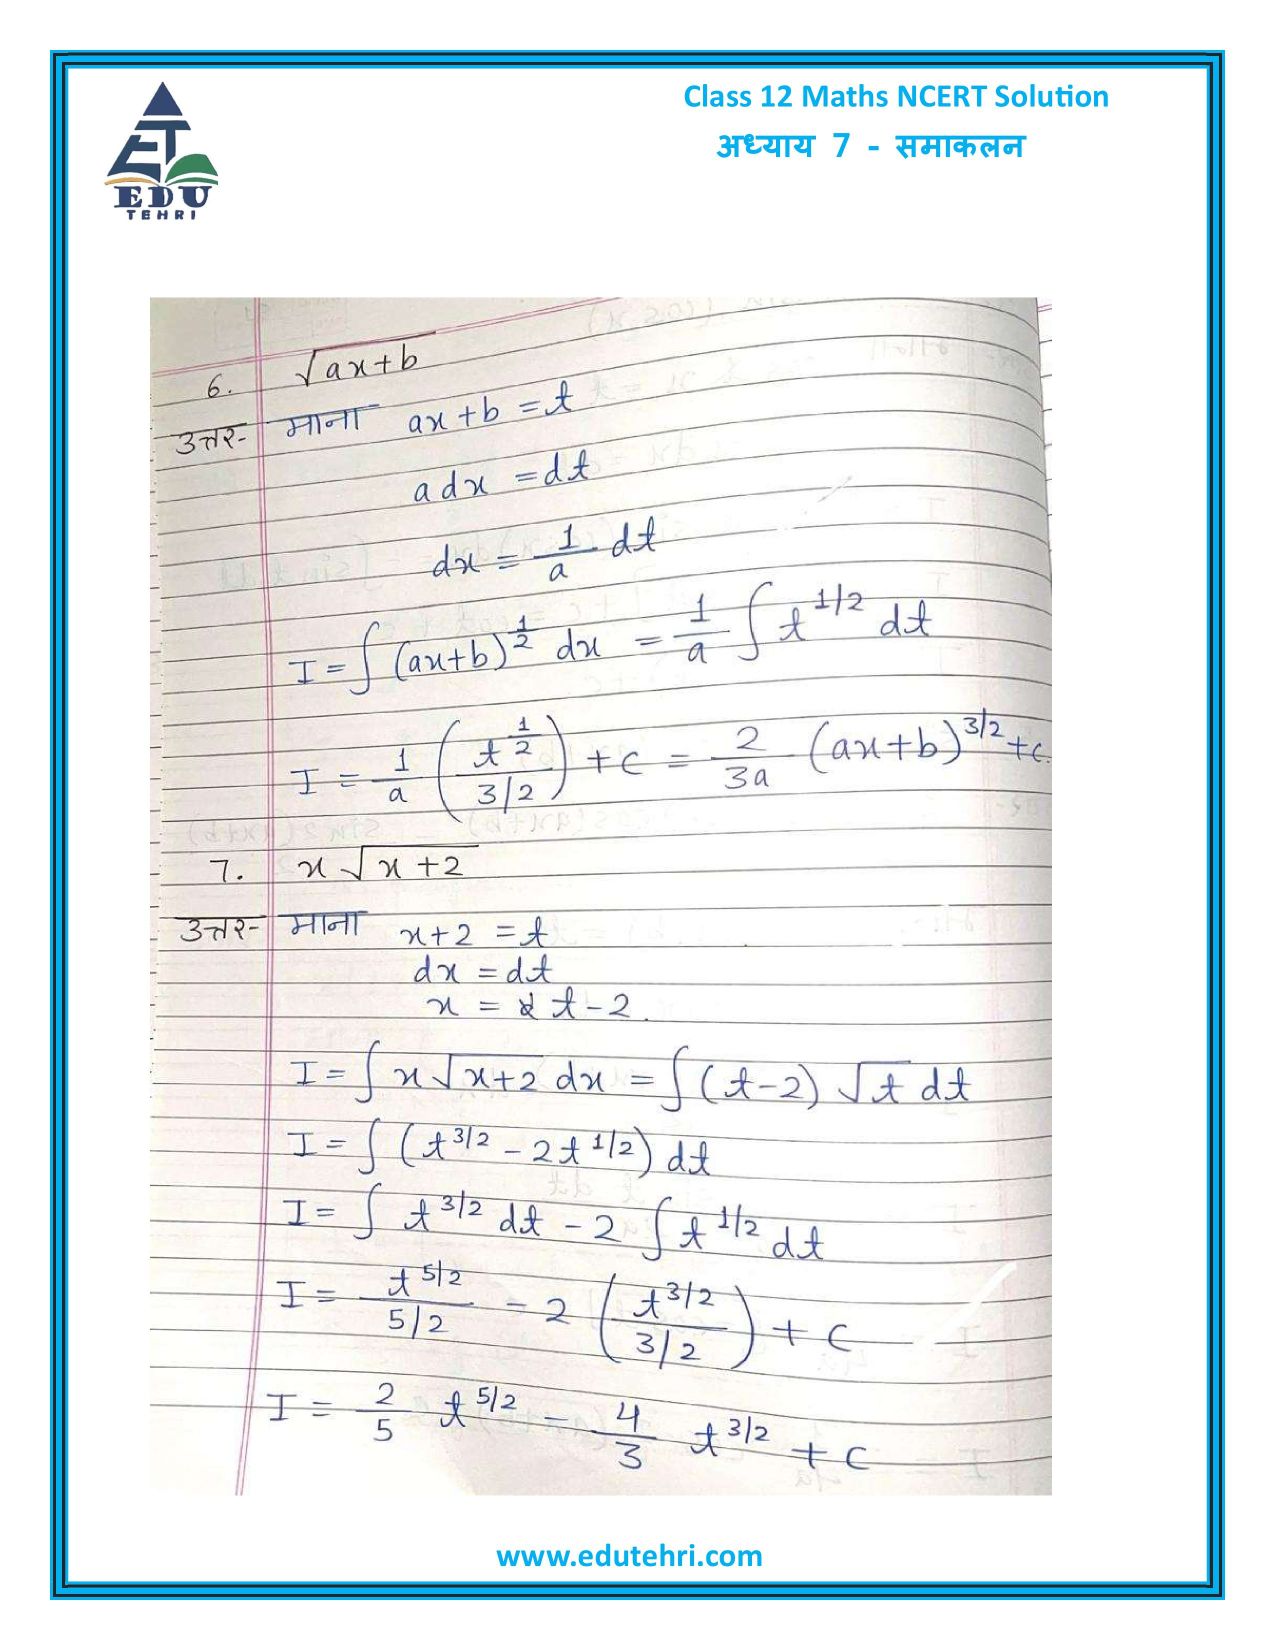 Class 12 Maths NCERT Solution
अध्याय 7 - समाकलन
ET
EDU
TEHRI
6. √ax+b
उत्तर- माना ax+b = t
adx = dt
dx = 1/a dt
I = ∫ (ax+b)^1/2 dx = 1/a ∫ t^1/2 dt
I = 1/a (t^1/2 / 3/2) + c = 2/3a (ax+b)^3/2 + c.
7. x √x+2
उत्तर- माना x+2 = t
dx = dt
x = t-2.
I = ∫ x√x+2 dx = ∫ (t-2) √t dt
I = ∫ (t^3/2 - 2t^1/2) dt
I = ∫ t^3/2 dt - 2 ∫ t^1/2 dt
I = t^5/2 / 5/2 - 2 (t^3/2 / 3/2) + c
I = 2/5 t^5/2 - 4/3 t^3/2 + c
www.edutehri.com